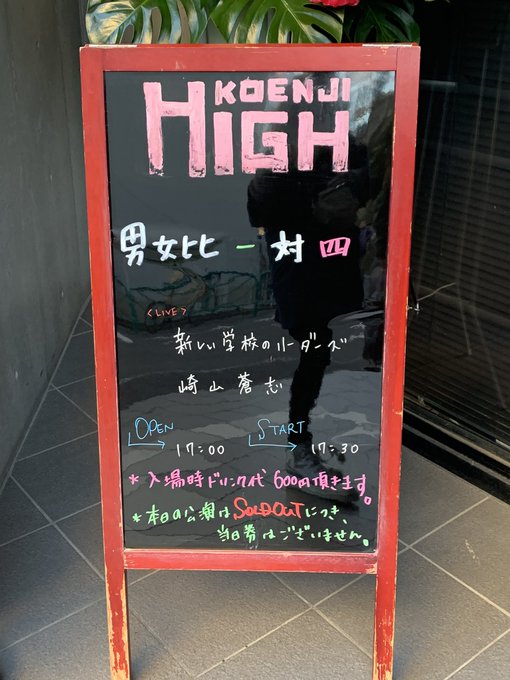 KOENJI
HIGH
男女比 一 対 四
<LIVE>
新しい学校のリーダーズ
崎山蒼志
OPEN 17:00 START 17:30
* 入場時ドリンク代 600円頂きます。
* 本日の公演はSOLDOUTにつき、
当日券はございません。